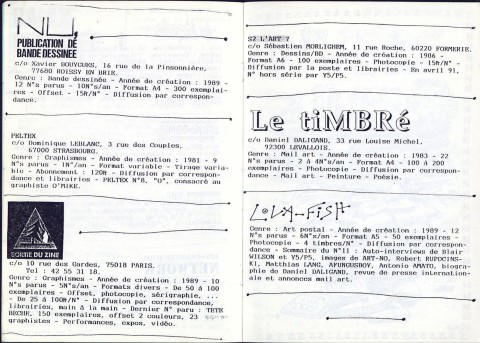 NU,
PUBLICATION DE
BANDE DESSINEE
c/o Xavier BOUYCURS, 16 rue de la Pinsonnière,
77680 ROISSY EN BRIE.
Genre : Bande dessinée - Année de création : 1989 -
12 N°s parus - 10N°s/an - Format A4 - 300 exemplai-
res - Offset - 15ft/N° - Diffusion par correspon-
dance.
PELTEX
c/o Dominique LEBLANC, 3 rue des Couples,
67000 STRASBOURG.
Genre : Graphismes - Année de création : 1981 - 9
N°s parus - 1N°/an - Format variable - Tirage varia-
ble - Abonnement : 120ft - Diffusion par correspon-
dance et librairies - PELTEX N°8, "O", consacré au
graphiste O'MIKE.
SORTIE DU ZINE
c/o 10 rue des Gardes, 75018 PARIS.
Tel : 42 55 31 18.
Genre : Graphismes - Année de création : 1989 - 10
N°s parus - 5N°s/an - Formats divers - De 50 à 100
exemplaires - Offset, photocopie, sérigraphie, ...
- De 25 à 100ft/N° - Diffusion par correspondance,
librairies, main à la main - Dernier N° paru : TETE
BECHE, 150 exemplaires, offset 2 couleurs, 23
graphistes - Performances, expos, vidéo.
S2 L'ART ?
c/o Sébastien MORLIGHEM, 11 rue Roche, 60220 FORMERIE.
Genre : Dessins/BD - Année de création : 1986 -
Format A6 - 100 exemplaires - Photocopie - 15ft/N° -
Diffusion par la poste et librairies - En avril 91,
N° hors série par Y5/P5.
Le tiMBRé
c/o Daniel DALIGAND, 33 rue Louise Michel,
92300 LEVALLOIS.
Genre : Mail art - Année de création : 1983 - 22
N°s parus - 2 à 4N°s/an - Format A4 - 100 à 200
exemplaires - Photocopie - Diffusion par correspon-
dance - Mail art - Peinture - Poésie.
LOLA-FISH
Genre : Art postal - Année de création : 1989 - 12
N°s parus - 6N°s/an - Format A5 - 50 exemplaires -
Photocopie - 4 timbres/N° - Diffusion par correspon-
dance - Sommaire du N°11 : Auto-interviews de Blair
WILSON et Y5/P5, images de ART-NO, Robert RUPOCINS-
KI, Matthias LANG, AFUNGUSBOY, Antonio AMATO, biogra-
phie de Daniel DALIGAND, revue de presse internatio-
nale et annonces mail art.